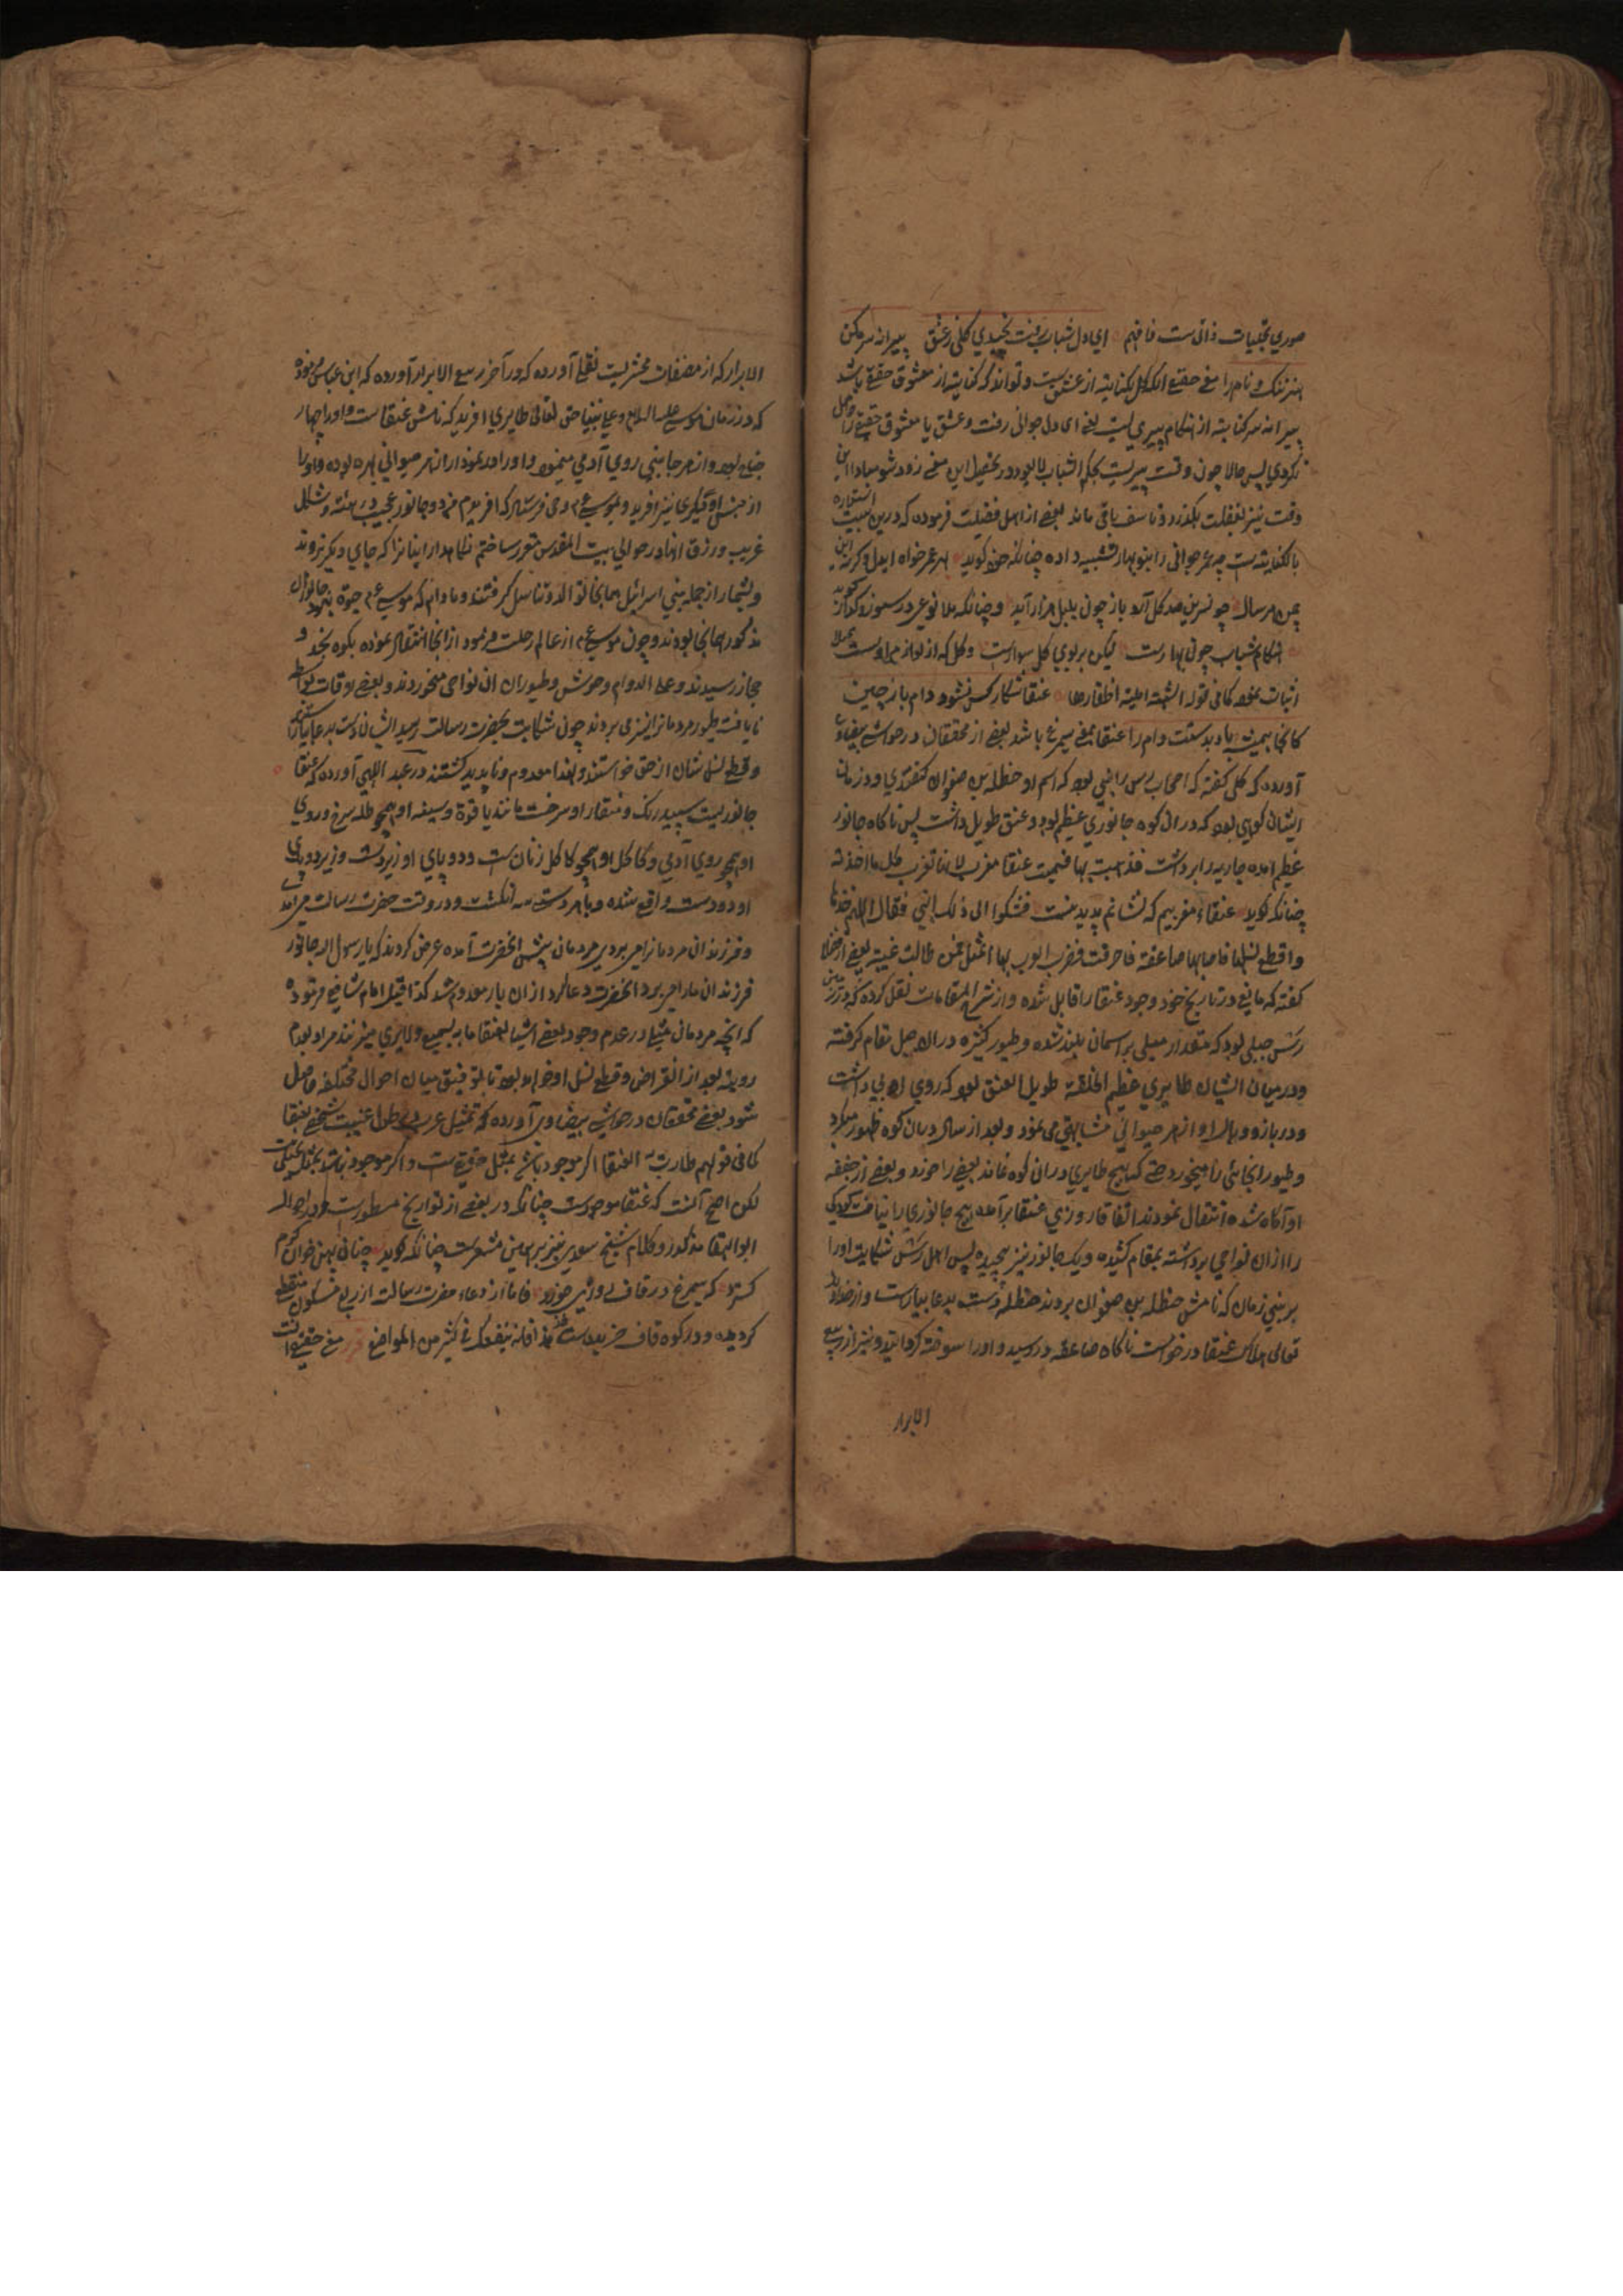 صوری تجلیات ذاتی ست فافهم ای دل شباب رفت نچیدی گلی ز عشق پیرانه سر مکن
هنر ننگ و نام را معنی حقیقی آنکه گل کنایت از عشق ست و تواند که کنایت از معشوق حقیقی باشد
پیرانه سر کنایت از هنگام پیری ست یعنی ای دل جوانی رفت و عشق یا معشوق حقیقی را حاصل
نکردی پس حالا چون وقت پیریست بحکم الشباب در تحصیل این معنی زود شو مبادا این
وقت نیز بغفلت بگذرد و تاسف باقی ماند بعضی از اهل فضیلت فرموده که درین بیت استعاره
بالکنایه ست چه عمر جوانی را بنوبهار تشبیه داده چنانکه خود گوید
چمن هر سال چو نسرین صد گل آرد باز چون بلبل هزار آید و چنانکه ملا نوعی در سوز و گداز گوید
هنگام شباب چون بهارست لیکن بر بوی گل سوارست و گل که از لوازم بهارست
اثبات نمود کما فی قوله انشبت المنیة اظفارها عنقا شکار کس نشود دام باز چین
کانجا همیشه باد بدست ست دام را عنقا بمعنی سیمرغ باشد بعضی از محققان در حواشی بیضاوی
آورده که کلبی گفته که اصحاب رس را نبی بود که اسم او حنظلة بن صفوان گفتندی و در زمان
ایشان کوهی بود که دران کوه جانوری عظیم بود و عنق طویل داشت پس ناگاه جانور
عظیم آمده جاریه را برداشت فذهبت بها فسمیت عنقا مغرب لانها تغرب کل ما اخذته
چنانکه گوید عنقاء مغربیم که نشانم پدید نیست فشکوا الی ذلک النبی فقال اللهم خذها
واقطع نسلها فاصابها صاعقة فاحرقت فضرب العرب بها المثل لمن طالت غیبته بعضی از فضلا
گفته که مانعی در تاریخ خود وجود عنقا را قایل شده و از شرح المقامات نقل کرده که در زمین
رس جبلی بود که مقدار میلی بر آسمان بلند شده و طیور کثیره دران جبل مقام گرفته
و در میان ایشان طایری عظیم الخلقة طویل العنق بود که روی آدمی داشت
و در بازو و بال او از هر حیوانی مشابهتی می نمود و بعد از سال دران کوه ظهور میکرد
و طیور آنجائی را میخورد حتی که هیچ طایری دران کوه نماند بعضی را خورد و بعضی از خفقه
او آگاه شده انتقال نمودند اتفاقا روزی عنقا برآمد هیچ جانوری را نیافت کودکی
را ازان نواحی برداشته بمقام کشیده و یک جانور نیز پیچیده پس اهل رس شکایت او را
بر نبی زمان که نامش حنظلة بن صفوان بردند حنظله دست بدعا بیاراست و از خداوند
تعالی هلاک عنقا درخواست ناگاه صاعقه در رسید و او را سوخته گردانید و نیز از ربیع
الابرار
الابرار که از مصنفات زمخشریست نقلی آورده که در آخر ربیع الابرار آورده که ابن عباس فرموده
که در زمان موسی علیه السلام و علی نبینا حق تعالی طایری آفرید که نامش عنقاست و او را چهار
جناح بود و از هر جانبی روی آدمی مینمود و او را در نمودار از هر حیوانی بهره بوده و او را
از جنس او دیگری نیز آفرید و بموسی ع م وحی فرستاد که آفریدم نر و جانور عجیب در هیئت و شکل
غریب و رزق آنها در حوالی بیت المقدس مقرر ساختم نگاهدار اینانرا که جای دیگر نروند
و بشمار از جمله بنی اسرائیل همانجا توالد و تناسل گرفتند و مادام که موسی ع م حیوة بود جانوران
مذکور همانجا بودند و چون موسی ع م از عالم رحلت فرمود از انجا انتقال نموده بکوه نجد و
حجاز رسیدند و علی الدوام وحوش و طیوران آن نواحی میخوردند و بعضی اوقات بواسطه
نایافت طیور مردمانرا نیز می بردند چون شکایت بحضرت رسالت رسید ایشان دست بدعا
و قطع نسل شان از حق خواستند و لهذا معدوم و ناپدید گشتند در عبد اللهی آورده که عنقا
جانوریست سپید رنگ و منقار او سرخست مانند یاقوت و سینه او همچو طلا سرخ و روی
او همچو روی آدمی و کاکل او همچو کاکل زنان ست و دو پای او زیر دست و زیر دو پای
او دو دست واقع شده و با هر دست سه انگشت و در وقت حضرت رسالت می آمد
و فرزندان مردمانرا می برد پس مردمان پیش آنحضرت آمده عرض کردند که یا رسول الله جانور
فرزندان ما را می برد آنحضرت دعا کرد ازان بار معدوم شد کذا قیل امام شافعی فرموده
که آنچه مردمان مثلی در عدم وجود بعضی اشیا العنقا ما به یسمع ولا یری میزنند مراد بعدم
رویت بعد از انقراض و قطع نسل او خواهد بود تا توفیق میان احوال مختلفه حاصل
شود بعضی محققان در حواشی بیضاوی آورده که تمثیل عرب بطول غیبت شخصی بعنقا
کما فی قولهم طارت به العنقا اگر موجود باشد تمثیل حقیقی ست و اگر موجود نباشد
لکن اصح آنست که عنقا موجودست چنانکه در بعضی از تواریخ مسطورست و در احوال
ابو البقا مذکور و کلام شیخ سعدی نیز بر همین مشعرست چنانکه گوید چنان پهن خوان کرم
گسترد که سیمرغ در قاف روزی خورد فاما از دعاء حضرت رسالت از ربع مسکون منقطع
گردیده و در کوه قاف خزیده است فی کثیر من المواضع معنی حقیقی آنست